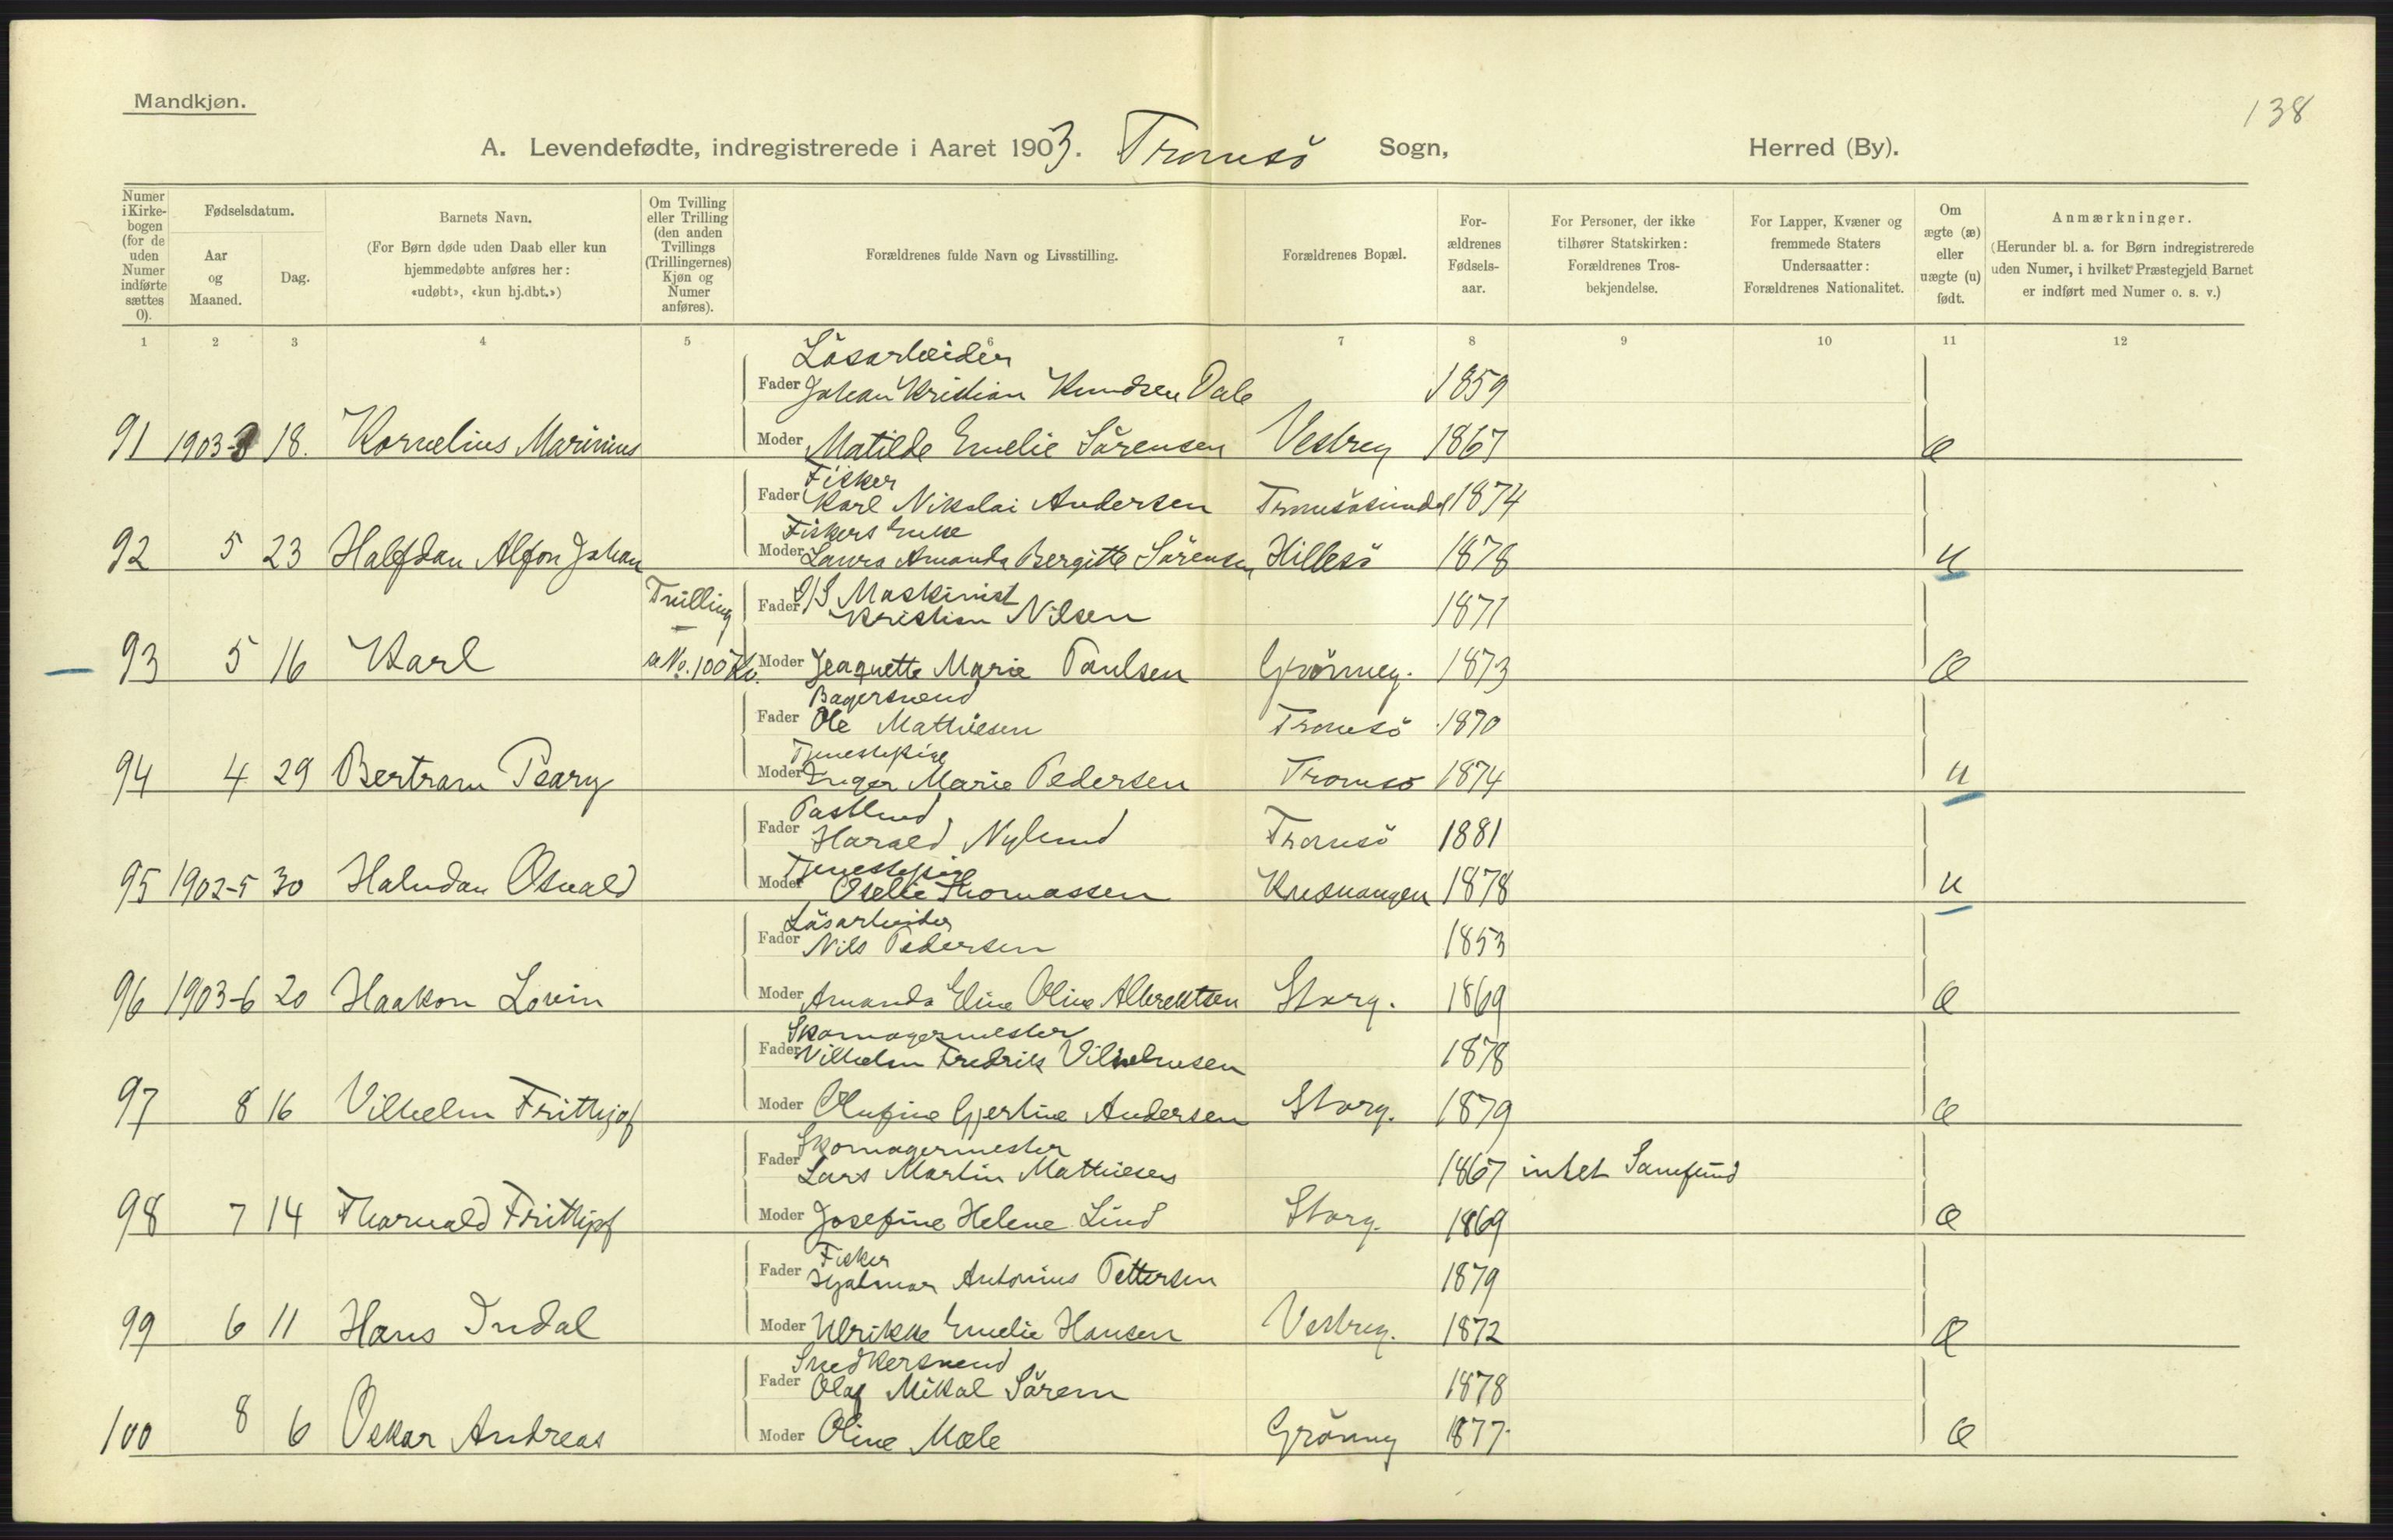 Mandkjøn.
138
A. Levendefødte, indregistrerede i Aaret 1903. Tromsö Sogn, Herred (By).
Numer i Kirke-bogen (for de uden Numer indførte sættes 0).
Fødselsdatum.
Aar og Maaned.
Dag.
Barnets Navn.
(For Børn døde uden Daab eller kun hjemmedøbte anføres her: «udøbt», «kun hj.dbt.»)
Om Tvilling eller Trilling (den anden Tvillings (Trillingernes) Kjøn og Numer anføres).
Forældrenes fulde Navn og Livsstilling.
Forældrenes Bopæl.
For-ældrenes Fødsels-aar.
For Personer, der ikke tilhører Statskirken: Forældrenes Tros-bekjendelse.
For Lapper, Kvæner og fremmede Staters Undersaatter: Forældrenes Nationalitet.
Om ægte (æ) eller uægte (u) født.
Anmærkninger.
(Herunder bl. a. for Børn indregistrerede uden Numer, i hvilket Præstegjeld Barnet er indført med Numer o. s. v.)
1 2 3 4 5 6 7 8 9 10 11 12
Lösarbeider
Fader Johan Kristian Knudsen Dale 1859
91 1903- 18. Kornelius Marinius Moder Matilde Emelie Sörensen Vestreg 1867 æ
Fisker
Fader Karl Nikolai Andersen Tromsösundet 1874
Fiskers Enke
92 5 23 Halfdan Alfon Johan Moder Laura Amanda Bergitte Sörensen Hillesö 1878 u
Tvilling Fader D/S Maskinist
Kristian Nilsen 1871
93 5 16 Karl a No. 100 Kv. Moder Jeaquette Marie Paulsen Grönneg. 1873 æ
Bagersvend
Fader Ole Mathiesen Tromsö 1870
Tjenestepige
94 4 29 Bertram Peary Moder Inger Marie Pedersen Tromsö 1874 u
Postbud
Fader Harald Nylund Tromsö 1881
Tjenestepige
95 1902-5 30 Halvdan Osvald Moder Oselie Thomassen Kvænangen 1878 u
Lösarbeider
Fader Nils Pedersen 1853
96 1903-6 20 Haakon Lovin Moder Amanda Eline Oline Albrektsen Storg. 1869 æ
Skomagermester
Fader Vilhelm Fredrik Vilhelmsen 1878
97 8 16 Vilhelm Frithjof Moder Olufine Gjertine Andersen Storg. 1879 æ
Skomagermester
Fader Lars Martin Mathiesen 1867 intet Samfund
98 7 14 Thorvald Frithjof Moder Josefine Helene Lind Storg. 1869 æ
Fisker
Fader Hjalmar Antonius Pettersen 1879
99 6 11 Hans Indal Moder Ulrikke Emelie Hansen Vestreg. 1872 Æ
Snedkersvend
Fader Olaf Mikal Sörem 1878
100 8 6 Oskar Andreas Moder Oline Mæle Grönneg 1877. æ